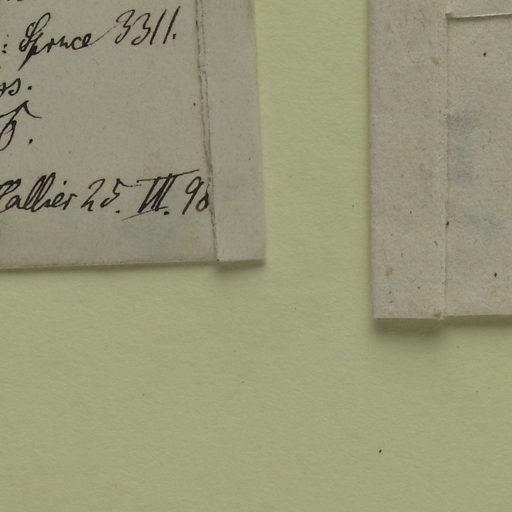 : Spruce 3311.
os.
Hallier 25. VII. 96